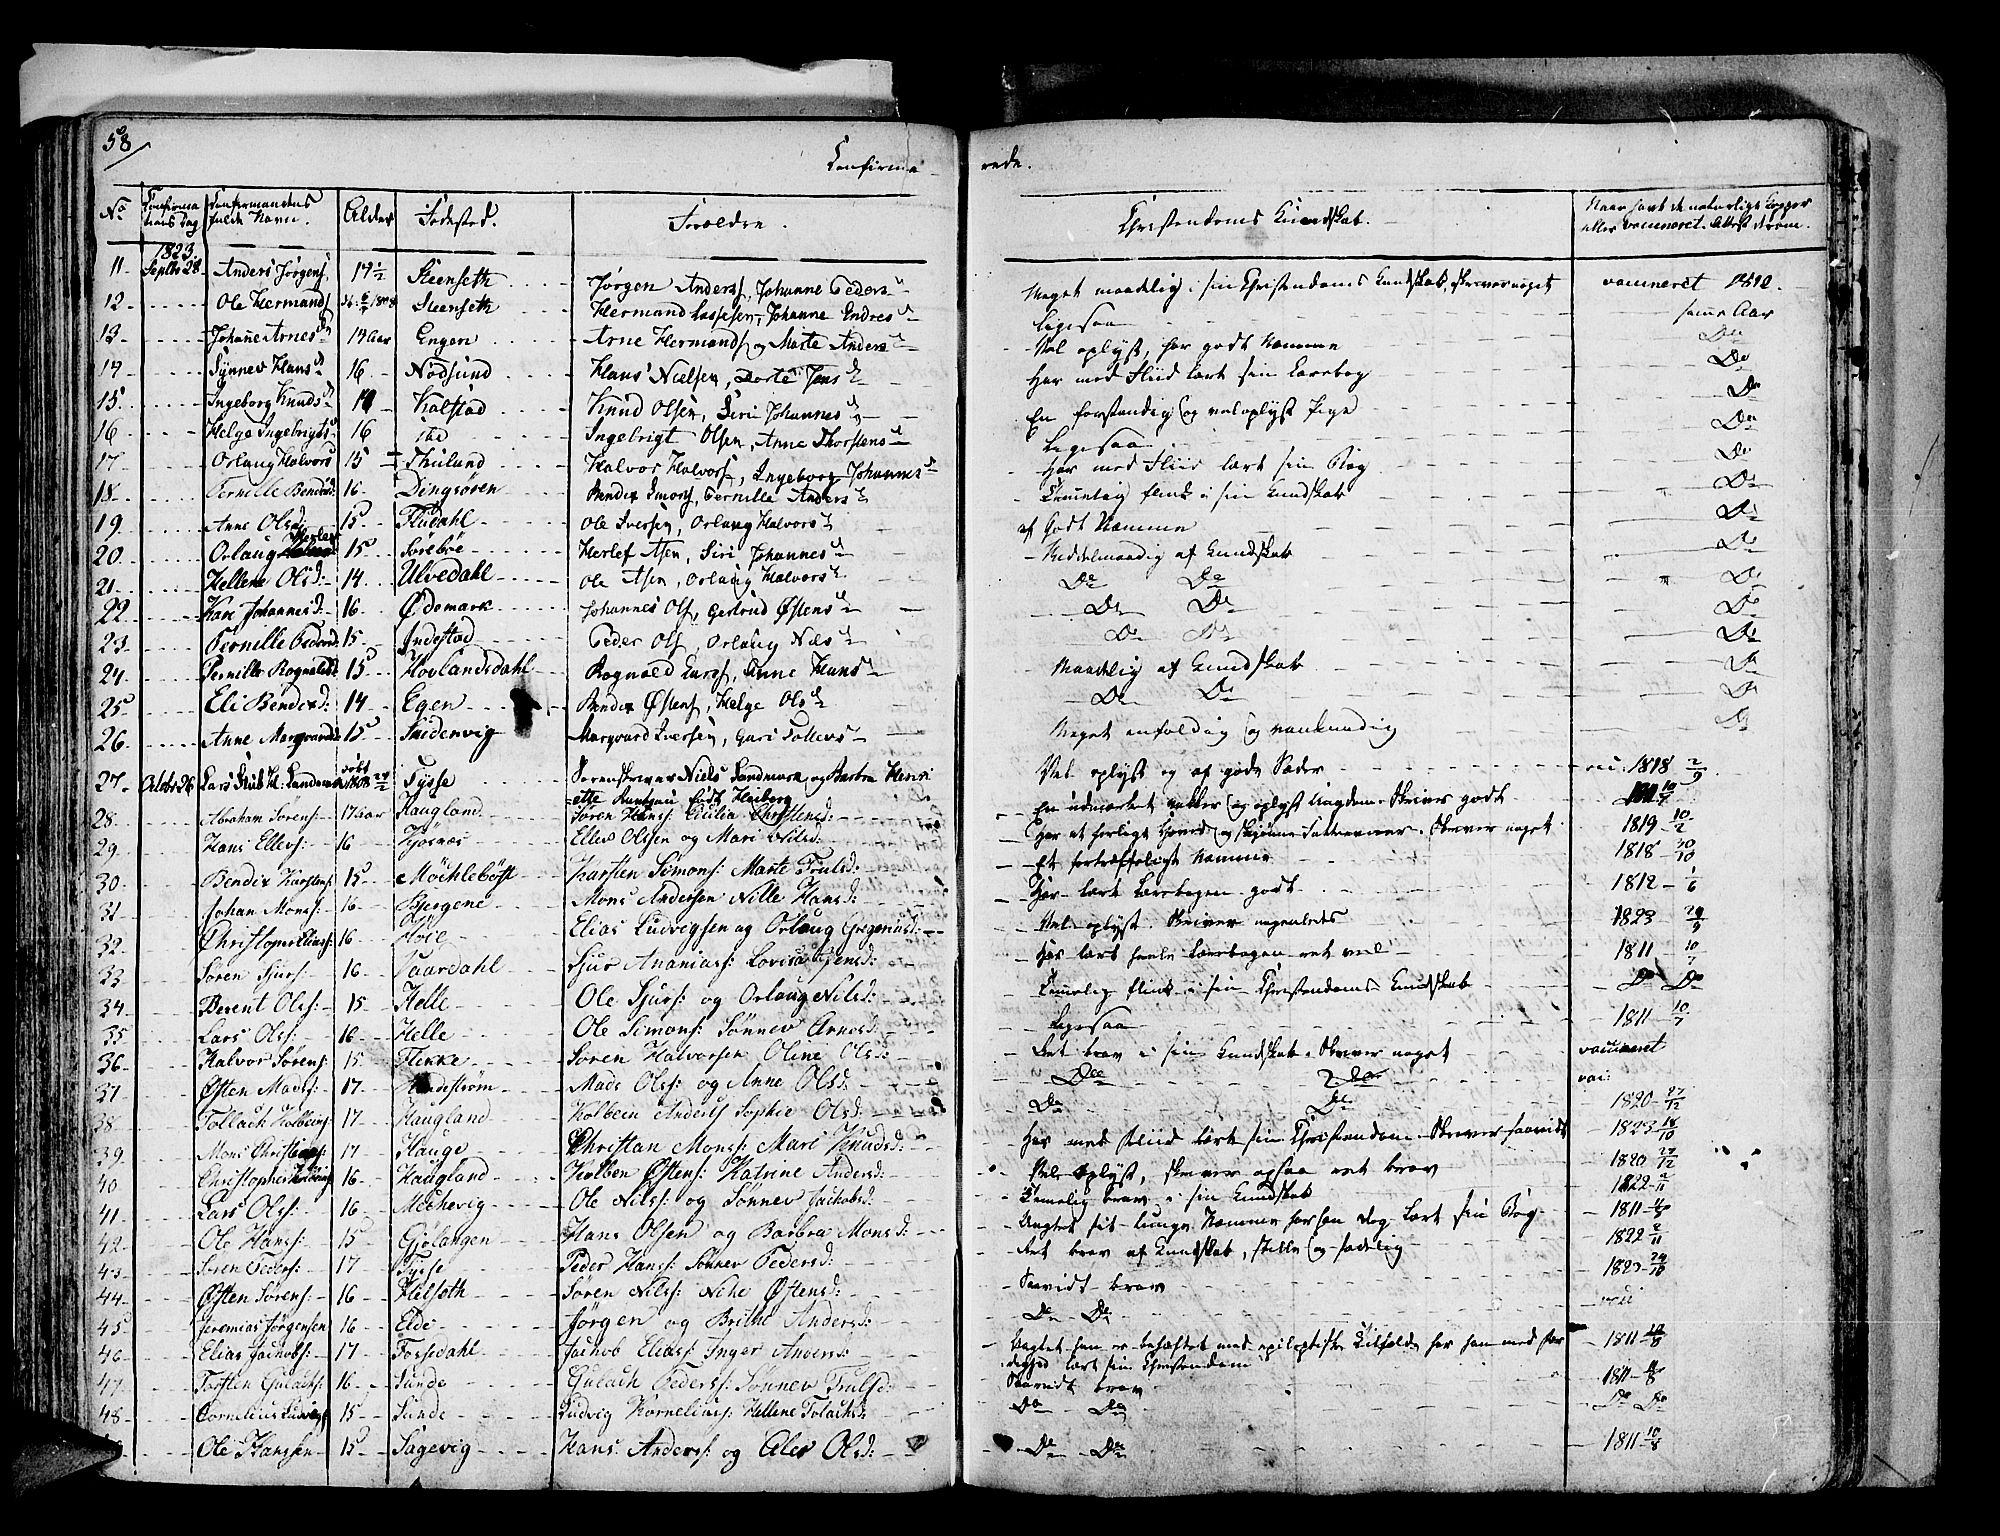 58
Confirma rede.
No Confirmations Dag Confirmandens fulde Navn. Alder Födested. Forældre. Christendoms Kundskab. Naar havt de naturlige Kopper eller vaccineret. Attest derom.
1823
11 Septbr 28 Anders Jörgens. 14 1/2 Steenseth Jørgen Anderss, Johanne Peders Meget maadelig i sin Christendoms Kundskab, skriver noget vaccineret 1812
12 Ole Hermands Steenseth Hermand Lassesen, Johanne Endres Ligesaa samme Aar
13 Johane Arnes 14 Aar Engen Arne Hermands og Marte Anders Vel oplyst, har godt Nemme Do
14 Synnev Hans 16 Nödsund Hans Nielsen, Dorte Jens Har med Fliid lært sin Lærebog Do
15 Ingeborg Knuds Kalstad Knud Olsen, Siri Johannes En forstandig og veloplyst Pige Do
16 Helge Ingebrigts 16 ibd Ingebrigt Olsen, Anne Thorstens Ligesaa Do
17 Orlaug Halvors 15 Thulund Halvor Halvors, Ingeborg Johannes Har med Fliid lært sin Bog Do
18 Pernille Bendixd: 16 Dingsøren Bendix Simons, Pernille Anders Temmelig flink i sin Kundskab Do
19 Anne Olsd 15 Flüdahl Ole Iversen, Orlaug Halvors af Godt Nemme Do
20 Orlaug Herlefs 15 Sørebøe Herlef Asen, Siri Johannes Middelmaadig af Kundskab Do
21 Hellene Olsd: 14 Ulvedahl Ole Asen, Orlaug Halvors Do Do Do
22 Kari Johannesd: 16 Ødemark Johannes Ols, Gertrud Østens Do Do Do
23 Pernille Pedersd 15 Indestad Peder Ols, Orlaug Nils Do Do Do
24 Pernille Rognaldsd: 15 Hovlandsdahl Rognald Larss, Anne Hans Maadelig af Kundskab Do
25 Eli Bendixd: 14 Egen Bendix Østens, Helge Ols Do Do Do
26 Anne Margvards 15 Smidevig Margvard Iversen, Guri Tollevs Meget enfoldig og vankundig Do
27 Octobr 26 Lars Landmark født 1808 Tysse Sorenskriver Niels Landmark og Barbra Henriette født Heiberg Vel oplyst og af gode Sæder vac: 1818 2/9
28 Abraham Sörens: 17 Aar Haugland Søren Hans: Cicilia Christensd: En udmærket vakker og oplyst Ungdom. Skriver godt 1811 10/7
29 Hans Ellers: 16 Hjösnæs Eller Olssen og Mari Nilsd: Har et herligt Hoved og skjønne Sattevner. Skriver noget 1819 10/2
30 Bendix Karstens: 15 Möchlebost Karsten Simons: Marte Trulsd: Et fortræffeligt Nemme 1818 30/10
31 Johan Mons: 16 Bjergene Mons Andersen Nille Hansd: Har lært Lærebogen godt 1812 1/6
32 Christopher Eliass: 16 Høie Elias Ludvigsen og Orlaug Gregoriusd: Vel oplyst. Skriver nogenledes 1823 29/9
33 Søren Sjurs: 16 Vaardahl Sjur Ananiass: Lovisa Jensd: Har lært heele Lærebogen ret vel 1811 10/7
34 Berent Ols: 15 Helle Ole Sjurs: og Orlaug Nilsd: Temmelig flink i sin Christendoms Kundskab Do Do
35 Lars Ols: 16 Helle Ole Simons: Sønnev Arnesd: Ligesaa 1811 10/7
36 Halvor Sörens: 15 Flekke Søren Halvorsen Oline Olsd: Ret brav i sin Kundskab. Skriver noget vaccineret
37 Østen Mads: 17 Mads Ols: og Anne Olsd: Do Do vac:
38 Tollach Kolbeins: 17 Haugland Kolbein Anders Sophie Olsd: Do Do 1820 27/12
39 Mons Christians: 17 Hauge Christan Mons: Mari Knudsd: Har med Fliid lært sin Christendom. Skriver saavidt 1823 18/10
40 Christopher 16 Haugland Kolben Østens: Katrine Andersd: Vel oplyst, skriver ogsaa ret brav 1820 27/12
41 Lars Ols: 16 Mechevig Ole Nils: og Sönnev Jacobsd: Temelig brav i sin Kundskab 1822 2/11
42 Ole Hans: 15 Gjølangen Hans Olsen og Barbra Monsd: Uagtet sit tunge Nemme har han dog lært sin Bog 1811 4/8
43 Sören Peders: 17 Tysse Peder Hans: Sønnev Pedersd: Ret brav af Kundskab, stille og sædelig 1822 2/11
44 Østen Sörens: 16 Helseth Søren Nils: Nehe Østensd: Saavidt brav 1823 29/10
45 Jeremias Jørgensen 16 Elde Jørgen og Brithe Andersd: Do Do vac:
46 Elias Jachobs: 17 Fossedahl Jachob Elias: Inger Andersd: Uagtet han er behæftet med epileptiske Tilfælde har han med Færdighed lært sin Christendom 1811 10/8
47 Torsten Gulachs: 16 Sunde Gulach Peders: Sønnev Trulsd: Saavidt brav 1811 11/8
48 Cornelius Ludvigs 15 Sunde Ludvig Korneliuss: Hellene Tolachsd: Do Do Do Do
Ole Hanssen 15 Sagevig Hans Anders: og Olsd: Do Do 1811 10/8